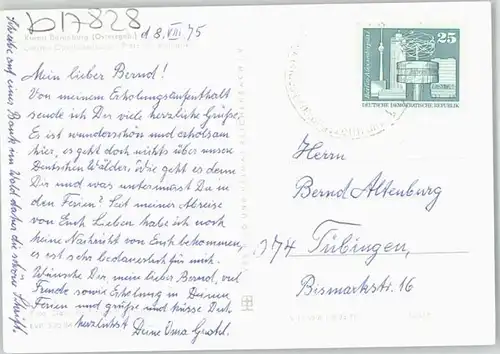 b17828
d 8. VIII. 75
Mein lieber Bernd!
Von meinem Erholungsaufenthalt
sende ich Dir viele herzliche Grüße.
Es ist wunderschön und erholsam
hier, es geht doch nichts über unsere
Deutschen Wälder. Wie geht es denn
Dir und was unternimmst Du in
den Ferien? Seit meiner Abreise
von Euch Lieben habe ich noch
keine Nachricht von Euch bekommen,
es ist sehr bedauerlich für mich.
Wünsche Dir, mein lieber Bernd, viel
Freude sowie Erholung in Deinen
Ferien und grüße und küsse Dich
herzlichst Deine Oma
Schreibe auf einer Bank im Wald daher die schöne Schrift.
25
DEUTSCHE DEMOKRATISCHE REPUBLIK
Herrn
Bernd Altenburg
374 Tübingen,
Bismarkstr. 16